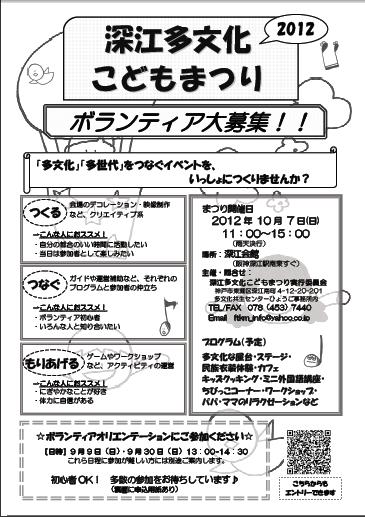 2012
深江多文化
こどもまつり
ボランティア大募集！！
「多文化」「多世代」をつなぐイベントを、
いっしょにつくりませんか？
つくる
会場のデコレーション・映像制作
など、クリエイティブ系
→こんな人におススメ！
・自分の都合のいい時間に活動したい
・当日は参加者として楽しみたい
つなぐ
ガイドや運営補助など、それぞれの
プログラムと参加者の仲立ち
→こんな人におススメ！
・ボランティア初心者
・いろんな人と知り合いたい
もりあげる
ゲームやワークショップ
など、アクティビティの運営
→こんな人におススメ！
・にぎやかなことが好き
・体力に自信がある
まつり開催日
2012年10月7日(日)
11：00～15：00
(雨天決行)
場所：深江会館
(阪神深江駅南東すぐ)
主催・問合せ：
深江多文化こどもまつり実行委員会
神戸市東灘区深江南町4-12-20-201
多文化共生センターひょうご事務所内
TEL/FAX 078 (453) 7440
Email ftkm_info@yahoo.co.jp
プログラム(予定)
多文化な屋台・ステージ・
民族衣装体験・カフェ
キッズクッキング・ミニ外国語講座・
ちびっこコーナー・ワークショップ・
パパ・ママのリラクゼーションなど
☆ボランティアオリエンテーションにご参加ください☆
【日時】9月9日(日)・9月30日(日)13：00-14：30
これら日程に参加が難しい方には別途ご案内します。
初心者OK！ 多数の参加をお待ちしています♪
(裏面に申込用紙あり)
こちらからも
エントリーできます